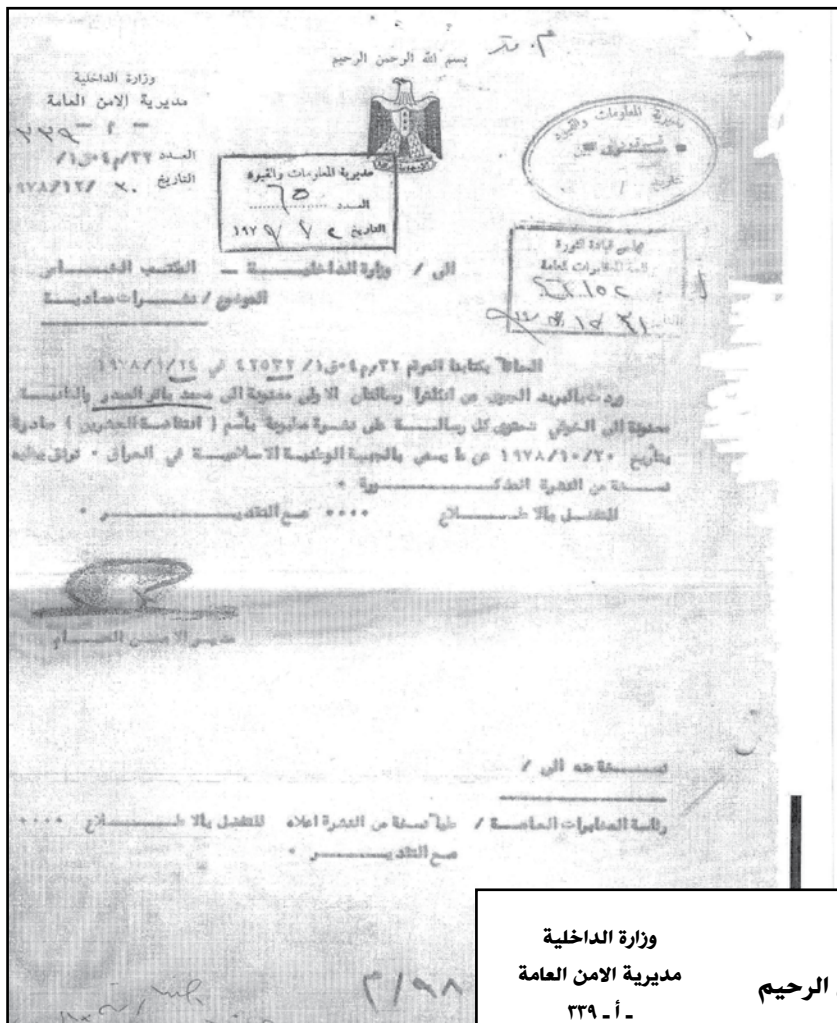 م. مد
بسم الله الرحمن الرحيم
وزارة الداخلية
مديرية الامن العامة
- أ - ٣٣٩
العدد ٣٢/م٤ق١/
التاريخ ٣٠/١٢/١٩٧٨
مديرية المعلومات والقيود
العدد ٦٥
التاريخ ٢ / ٧ / ١٩٧٩
مديرية المعلومات والقيود
تاريخ /
مجلس قيادة الثورة
رئاسة المخابرات العامة
الى / وزارة الداخلية - المكتب الخاص
الموضوع / نشرات معادية
الحاقا بكتابنا المرقم ٣٢/م٤ق١/ ٤٢٥٣٢ في ١٩٧٨/١/٢٤
وردت بالبريد الجوي من انكلترا رسالتان الاولى معنونة الى محمد باقر الصدر والثانية
معنونة الى الخوئي تحتوي كل رسالة على نشرة مطبوعة باسم ( انتفاضة العشرين ) صادرة
بتأريخ ١٩٧٨/١٠/٢٠ عن ما يسمى بالجبهة الوطنية الاسلامية في العراق ٠ نرفق بطيه
نسخة من النشرة المذكورة ٠
للتفضل بالاطلاع ٠٠٠٠ مع التقدير ٠
مدير الامن العام
نسخة منه الى /
رئاسة المخابرات العامة / طيا نسخة من النشرة اعلاه للتفضل بالاطلاع ٠٠٠٠
مع التقدير ٠
٩٨/م
وزارة الداخلية
مديرية الامن العامة
ـ أ ـ ٣٣٩
الرحيم